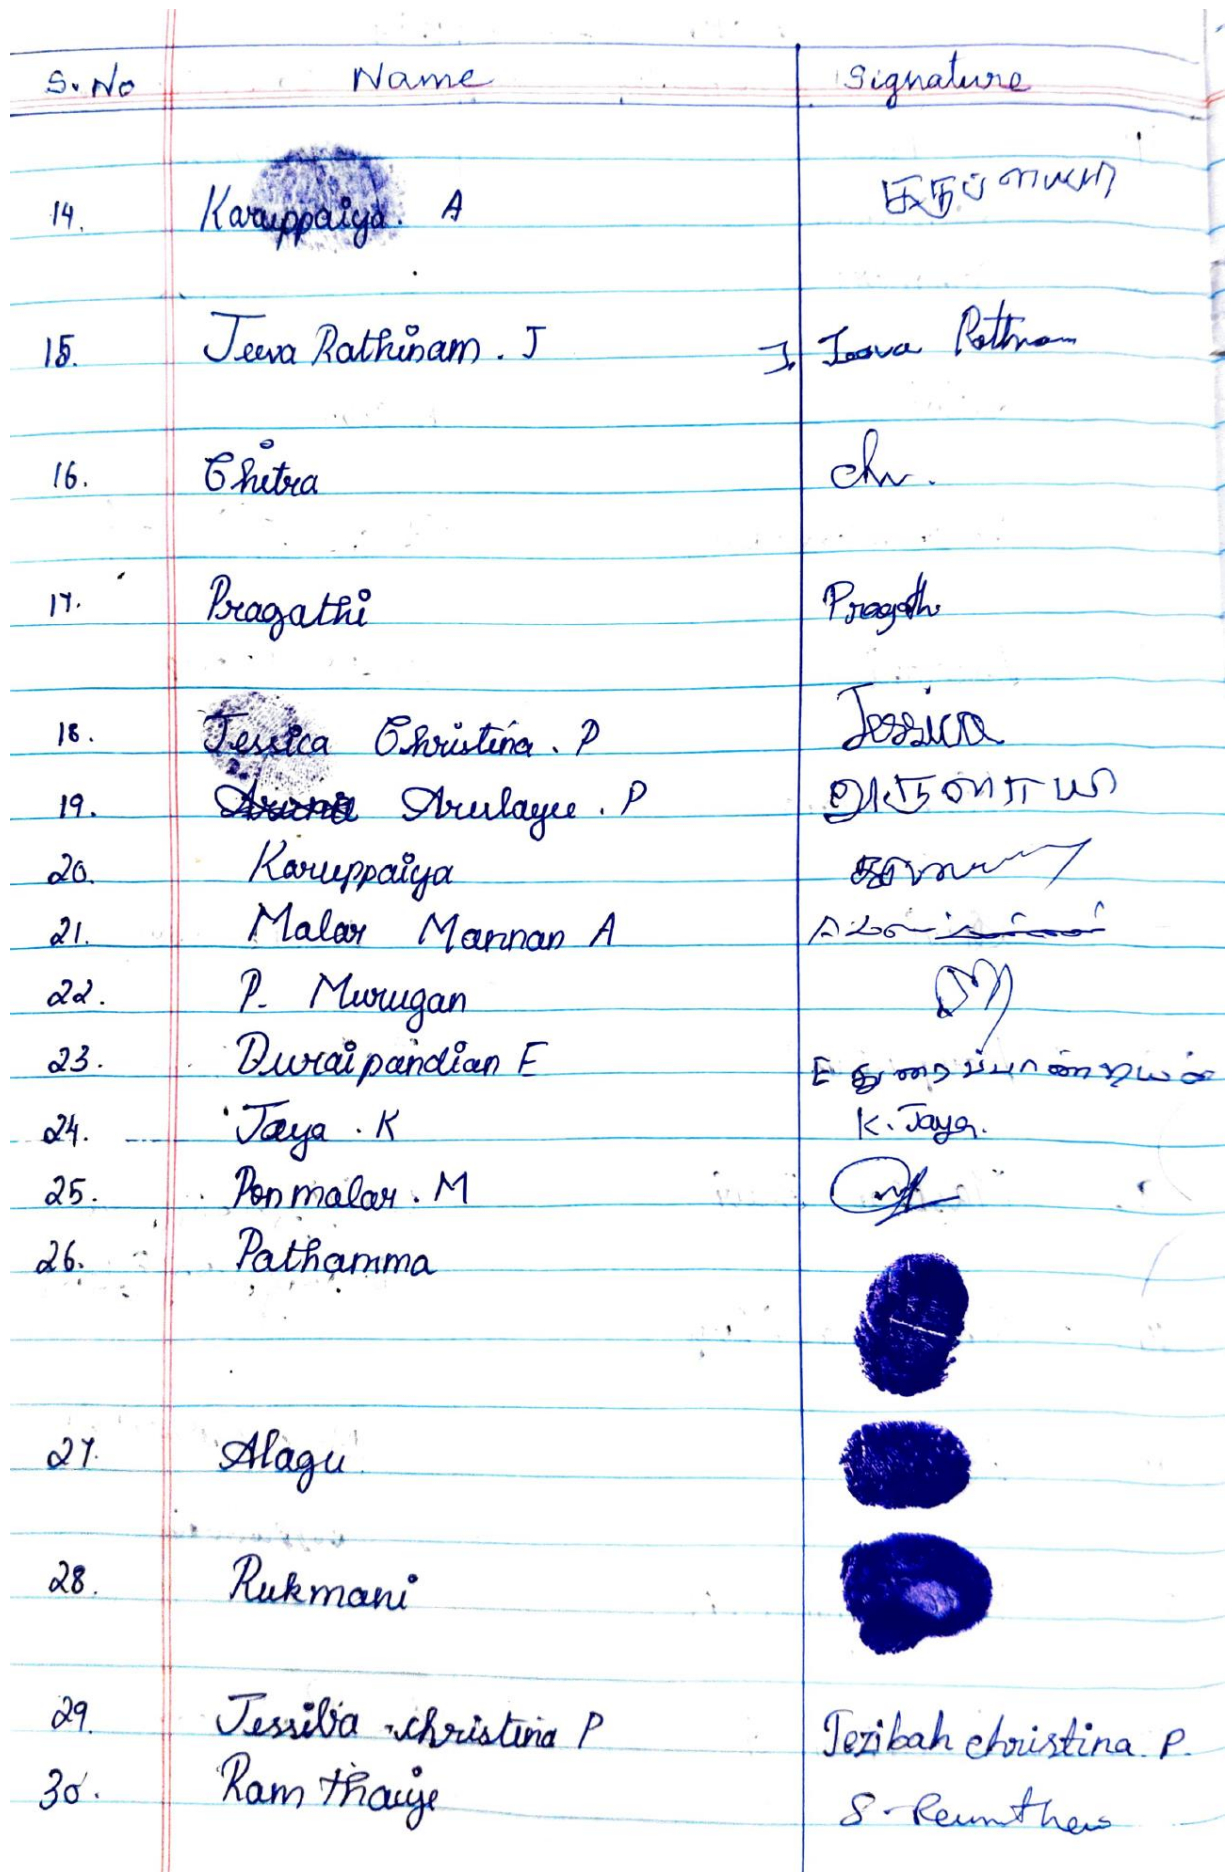 S. No Name Signature
14. Karuppaiya. A
15. Jeeva Rathinam. J J. Jeeva Rathnam
16. Chitra
17. Pragathi Pragathi
18. Jessica Christina. P Jessica
19. Arulayee. P
20. Karuppaiya
21. Malar Mannan A
22. P. Murugan
23. Duraipandian E E துரைப்பாண்டியன்
24. Jaya. K K. Jaya.
25. Ponmalar. M
26. Pathamma
27. Alagu
28. Rukmani
29. Jessiba christina P Jezibah christina. P.
30. Ram thaiye